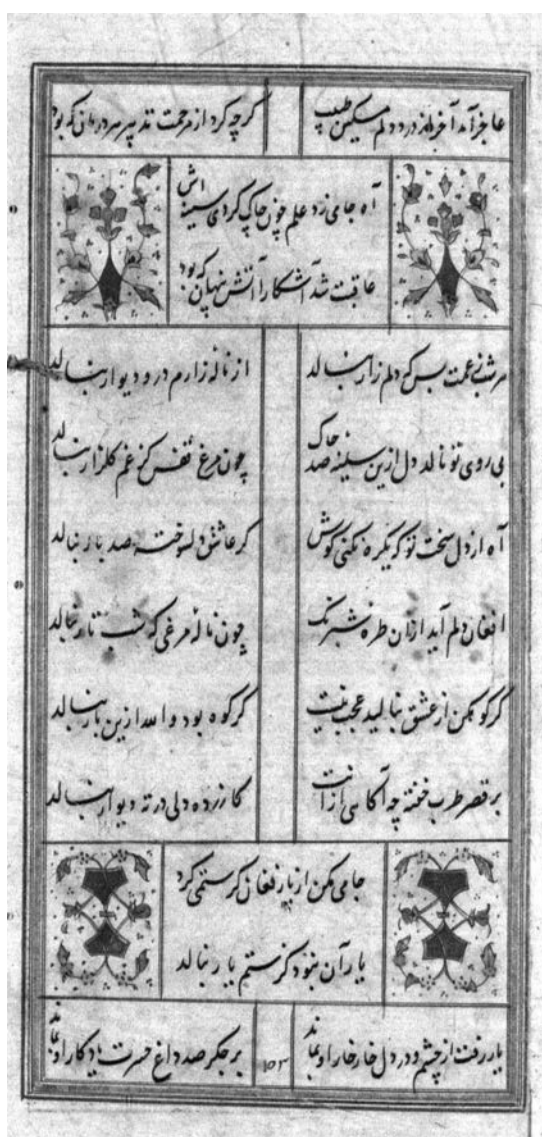 عاجز آمد آخر از درد دلم مسکین طبیب گرچه کرد از مرحمت تدبیر هر درمان که بود
آه جامی زد علم چون چاک کردی سینه اش
عاقبت شد آشکارا آتش پنهان که بود
هر شبی غمت بس که دلم زار بنالد از نالهٔ زارم در و دیوار بنالد
بی روی تو نالد دل ازین سینهٔ صد چاک چون مرغ قفس کز غم گلزار بنالد
آه از دل سخت تو که یکره نکنی گوش گر عاشق دلسوخته صد بار بنالد
افغان دلم آید ازان طرهٔ شبرنگ چون نالهٔ مرغی که شب تار بنالد
گر کوهکن از عشق بنالید عجب نیست گر کوه بود والله ازین بار بنالد
بر قصر طرب خفته چه آگاهی ازانت کازرده دلی در ته دیوار بنالد
جامی مکن از یار فغان گر ستمی کرد
یار آن نبود کز ستم یار بنالد
یار رفت از چشم و در دل خار خار او بماند بر جگر صد داغ حسرت یادگار او بماند
۱۵۳